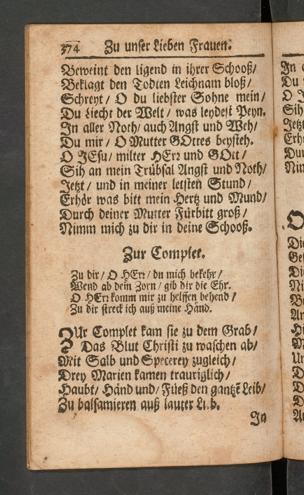 374 Zu unser Lieben Frauen.
Beweint den ligend in ihrer Schooß/
Beklagt den Todten Leichnam bloß/
Schreyt / O du liebster Sohne mein/
Du Liecht der Welt / was leydest Peyn.
In aller Noth/ auch Angst und Weh/
Du mir / O Mutter GOttes beysteh.
O JEsu / milter HErr und GOtt /
Sih an mein Trübsal Angst und Noth/
Jetzt / und in meiner letsten Stund/
Erhör was bitt mein Hertz und Mund/
Durch deiner Mutter Fürbitt groß/
Nimm mich zu dir in deine Schooß.
Zur Complet.
Zu dir / O HErr / du mich bekehr /
Wend ab dein Zorn / gib dir die Ehr.
O HErr komm mir zu helffen behend /
Zu dir streck ich auß meine Händ.
ZUr Complet kam sie zu dem Grab/
Das Blut Christi zu waschen ab/
Mit Salb und Specerey zugleich /
Drey Marien kamen trauriglich/
Haubt/ Händ und/ Füeß den gantz Leib/
Zu balsamieren auß lauter Lieb.
In